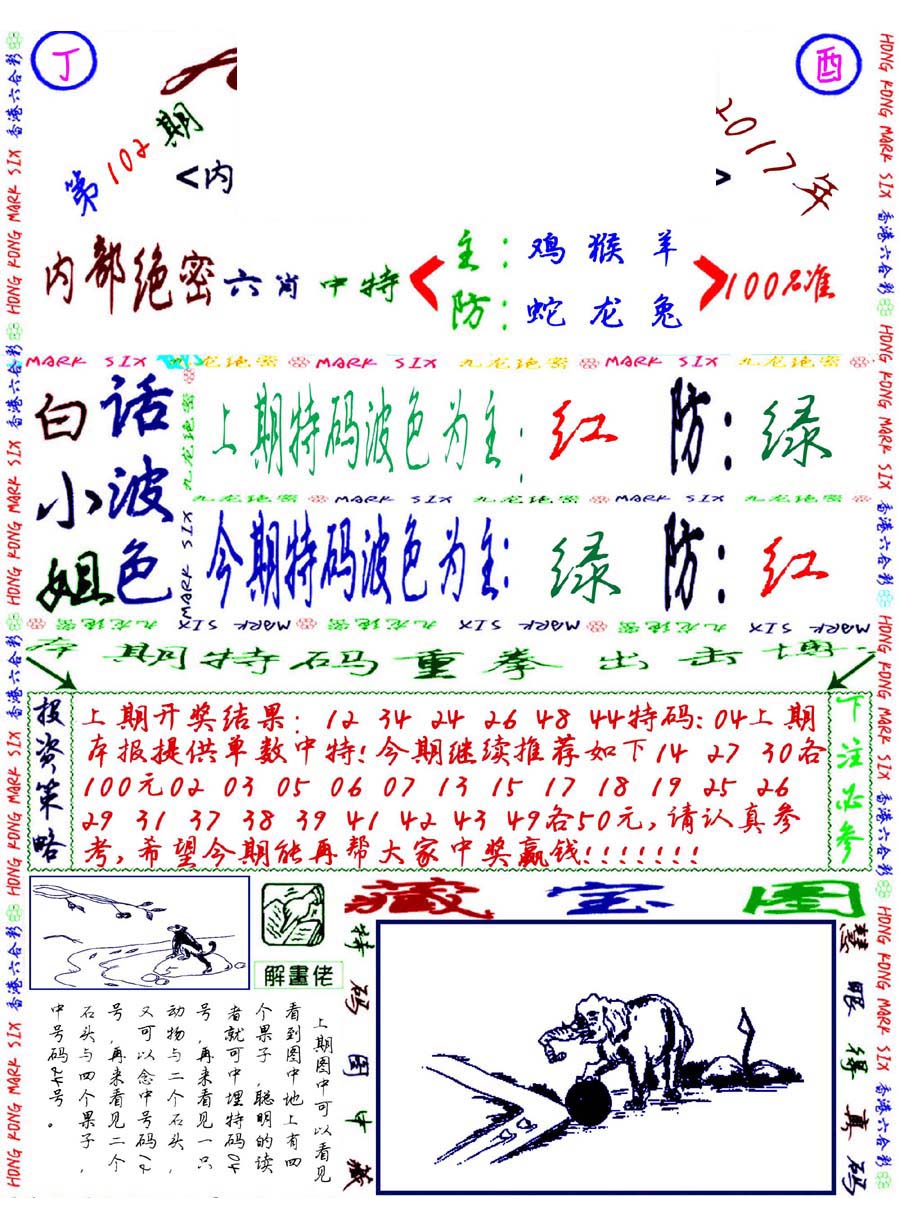 丁
酉
第102期
2017年
<内
>
内部绝密六肖中特
主:鸡猴羊
防:蛇龙兔
100%准
MARK SIX 九龙绝密 MARK SIX 九龙绝密 MARK SIX 九龙绝密
白话
小波
姐色
上期特码波色为主: 红 防: 绿
九龙绝密 MARK SIX 九龙绝密 MARK SIX 九龙绝密
今期特码波色为主: 绿 防: 红
九龙绝密 MARK SIX 九龙绝密 MARK SIX 九龙绝密 MARK SIX
期特码重拳出击
投资策略
上期开奖结果: 12 34 24 26 48 44特码:04上期
本报提供单数中特!今期继续推荐如下14 27 30各
100元02 03 05 06 07 13 15 17 18 19 25 26
29 31 37 38 39 41 42 43 49各50元,请认真参
考,希望今期能再帮大家中奖赢钱!!!!!!!
下注必参
藏宝图
解畫佬
特码图中藏
慧眼得真码
上期图中可以看见
看到图中地上有四
个果子,聪明的读
者就可中埋特码04
号,再来看见一只
动物与二个石头,
又可以念中号码12
号,再来看见二个
石头与四个果子,
中号码24号。
香港六合彩 HONG KONG MARK SIX 香港六合彩 HONG KONG MARK SIX 香港六合彩 HONG KONG MARK SIX 香港六合彩 HONG KONG MARK SIX
HONG KONG MARK SIX 香港六合彩 HONG KONG MARK SIX 香港六合彩 HONG KONG MARK SIX 香港六合彩 HONG KONG MARK SIX 香港六合彩